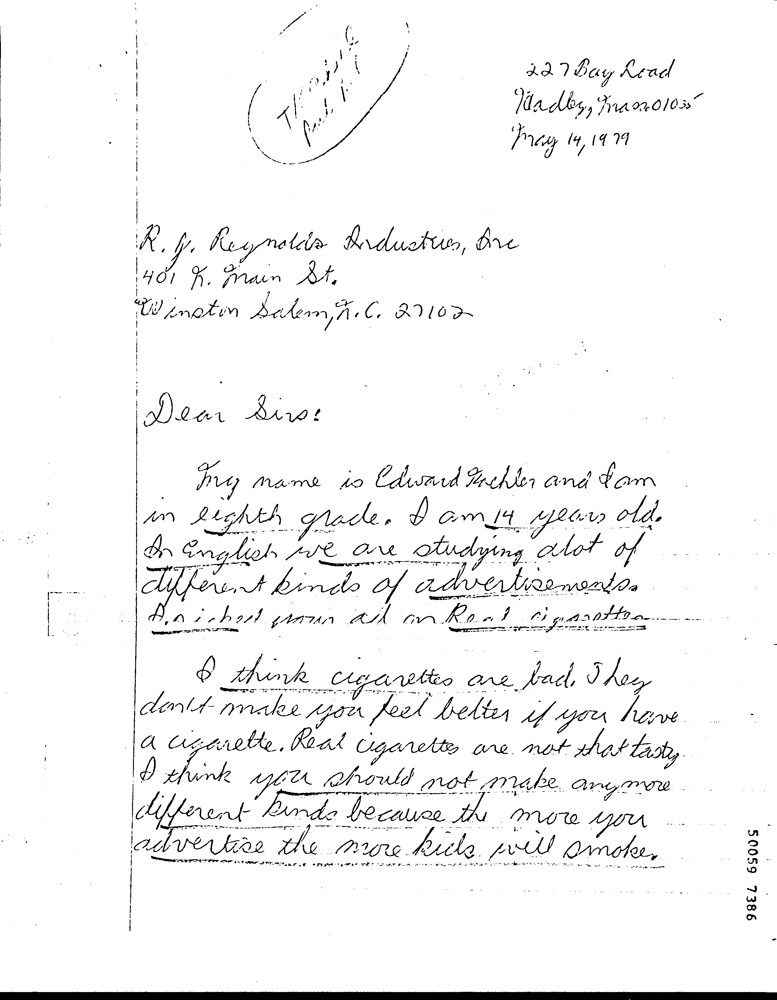 227 Bay Road
Hadley, Mass 01035
May 14, 1979
R. J. Reynolds Industries, Inc
401 N. Main St.
Winston Salem, N.C. 27102
Dear Sirs:
My name is Edward and I am
in eighth grade. I am 14 years old.
In English we are studying alot of
different kinds of advertisements.
I picked your ad on Real cigarettes
I think cigarettes are bad. They
don't make you feel better if you have
a cigarette. Real cigarettes are not that tasty.
I think you should not make anymore
different kinds because the more you
advertise the more kids will smoke.
50059 7386